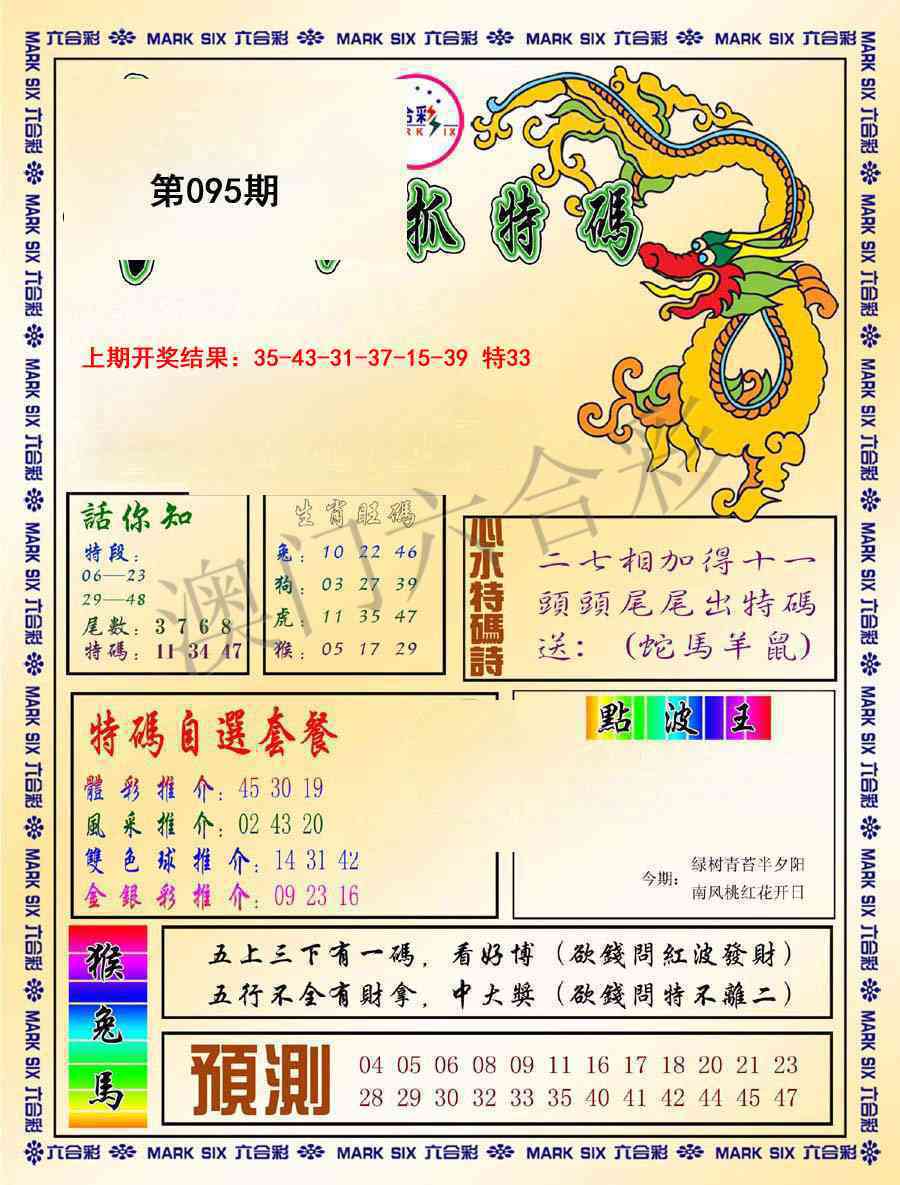 六合彩 MARK SIX 六合彩 MARK SIX 六合彩 MARK SIX 六合彩 MARK SIX 六合彩
第095期
抓特碼
上期开奖结果：35-43-31-37-15-39 特33
澳门六合彩
話你知
特段：
06—23
29—48
尾數：3 7 6 8
特碼：11 34 47
生肖旺碼
兔：10 22 46
狗：03 27 39
虎：11 35 47
猴：05 17 29
心水特碼詩
二七相加得十一
頭頭尾尾出特碼
送：（蛇馬羊鼠）
特碼自選套餐
體彩推介：45 30 19
風采推介：02 43 20
雙色球推介：14 31 42
金銀彩推介：09 23 16
點波王
今期：
绿树青苔半夕阳
南风桃红花开日
猴
兔
馬
五上三下有一碼，看好博（欲錢問紅波發財）
五行不全有財拿，中大獎（欲錢問特不離二）
預測
04 05 06 08 09 11 16 17 18 20 21 23
28 29 30 32 33 35 40 41 42 44 45 47
六合彩 MARK SIX 六合彩 MARK SIX 六合彩 MARK SIX 六合彩 MARK SIX 六合彩